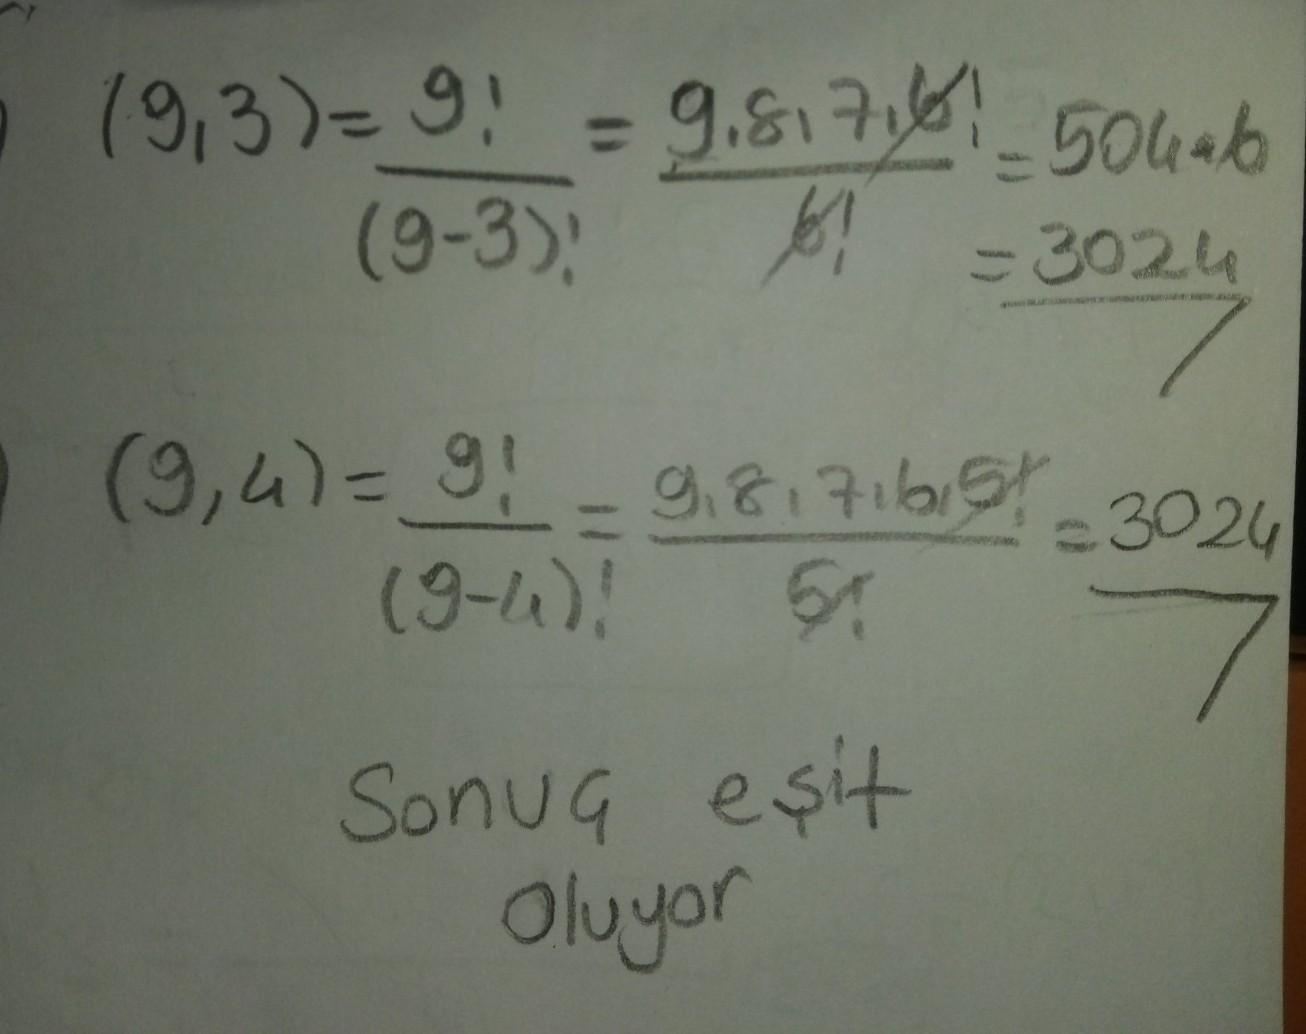 (9,3) = 9! / (9-3)! = 9.8.7.6! / 6! = 504.6
= 3024
(9,4) = 9! / (9-4)! = 9.8.7.6.5! / 5! = 3024
Sonuç eşit
oluyor